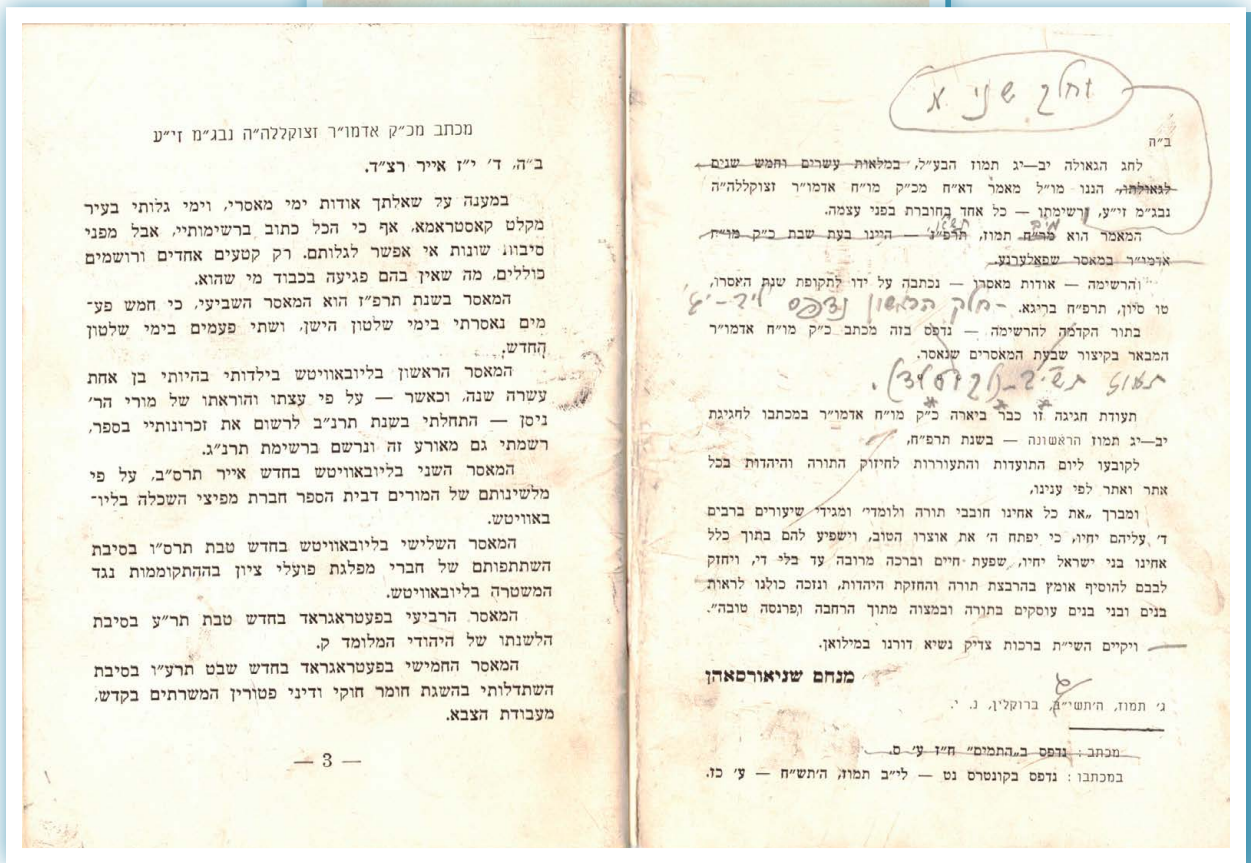 וחלק שני
ב״ה
לחג הגאולה יב—יג תמוז הבע״ל, במלאות עשרים וחמש שנים
לגאולתו, הננו מו״ל מאמר דא״ח מכ״ק מו״ח אדמו״ר זצוקללה״ה
נבג״מ זי״ע, ורשימתו — כל אחד בחוברת בפני עצמה.
המאמר הוא מר״ח תמוז, תרפ״ז — היינו בעת שבת כ״ק מו״ח
אדמו״ר במאסר שפאלערנע.
והרשימה — אודות מאסרו — נכתבה על ידו לתקופת שנת האסרו,
טו סיון, תרפ״ח בריגא. - חלק הראשון נדפס
בתור הקדמה להרשימה — נדפס בזה מכתב כ״ק מו״ח אדמו״ר
המבאר בקיצור שבעת המאסרים שנאסר.
תעודת חגיגה זו כבר ביארה כ״ק מו״ח אדמו״ר במכתבו לחגיגת
יב—יג תמוז הראשונה — בשנת תרפ״ח,
לקובעו ליום התועדות והתעוררות לחיזוק התורה והיהדות בכל
אתר ואתר לפי ענינו,
ומברך „את כל אחינו חובבי תורה ולומדי׳ ומגידי שיעורים ברבים
ד׳ עליהם יחיו, כי יפתח ה׳ את אוצרו הטוב, וישפיע להם בתוך כלל
אחינו בני ישראל יחיו, שפעת חיים וברכה מרובה עד בלי די, ויחזק
לבבם להוסיף אומץ בהרבצת תורה והחזקת היהדות, ונזכה כולנו לראות
בנים ובני בנים עוסקים בתורה ובמצוה מתוך הרחבה ופרנסה טובה״.
ויקיים השי״ת ברכות צדיק נשיא דורנו במילואן.
מנחם שניאורסאהן
ג׳ תמוז, ה׳תשי״ב, ברוקלין, נ. י.
מכתב: נדפס ב„התמים״ ח״ז ע׳ ס.
במכתבו: נדפס בקונטרס נט — לי״ב תמוז, ה׳תש״ח — ע׳ כז.
מכתב מכ״ק אדמו״ר זצוקללה״ה נבג״מ זי״ע
ב״ה, ד׳ י״ז אייר רצ״ד.
במענה על שאלתך אודות ימי מאסרי, וימי גלותי בעיר
מקלט קאסטראמא, אף כי הכל כתוב ברשימותיי, אבל מפני
סיבות שונות אי אפשר לגלותם. רק קטעים אחדים ורושמים
כוללים, מה שאין בהם פגיעה בכבוד מי שהוא.
המאסר בשנת תרפ״ז הוא המאסר השביעי, כי חמש פע־
מים נאסרתי בימי שלטון הישן, ושתי פעמים בימי שלטון
החדש.
המאסר הראשון בליובאוויטש בילדותי בהיותי בן אחת
עשרה שנה, וכאשר — על פי עצתו והוראתו של מורי הר׳
ניסן — התחלתי בשנת תרנ״ב לרשום את זכרונותיי בספר,
רשמתי גם מאורע זה ונרשם ברשימת תרנ״ג.
המאסר השני בליובאוויטש בחדש אייר תרס״ב, על פי
מלשינותם של המורים דבית הספר חברת מפיצי השכלה בליו־
באוויטש.
המאסר השלישי בליובאוויטש בחדש טבת תרס״ו בסיבת
השתתפותם של חברי מפלגת פועלי ציון בההתקוממות נגד
המשטרה בליובאוויטש.
המאסר הרביעי בפעטראגראד בחדש טבת תר״ע בסיבת
הלשנתו של היהודי המלומד ק.
המאסר החמישי בפעטראגראד בחדש שבט תרע״ו בסיבת
השתדלותי בהשגת חומר חוקי ודיני פטורין המשרתים בקדש,
מעבודת הצבא.
— 3 —